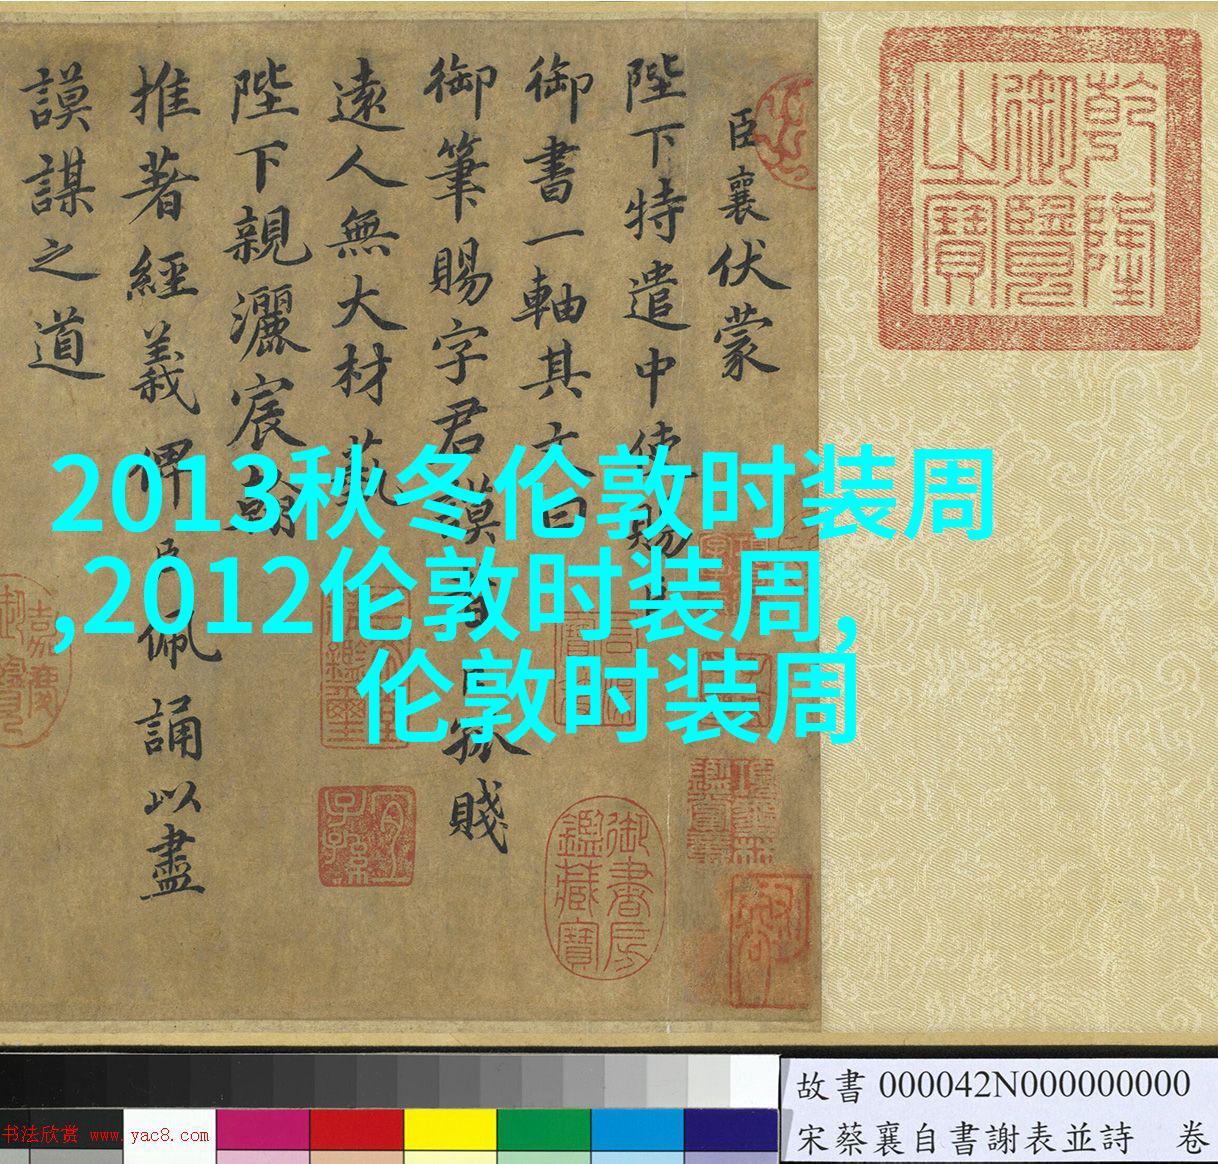 臣襄伏蒙
陛下特遣中使賜
御書一軸其文曰
御筆賜字君謨
賤
遠人無大材
陛下親灑宸翰
推著經義俾
佩誦以盡
謨謀之道
乾隆
御覽
之寶
御書房
鑑藏寶
宜
子孫
2013秋冬伦敦时装周
,2012伦敦时装周,
伦敦时装周
故書 000042N000000000
宋蔡襄自書謝表並詩 卷
书法欣赏 www.yac8.com